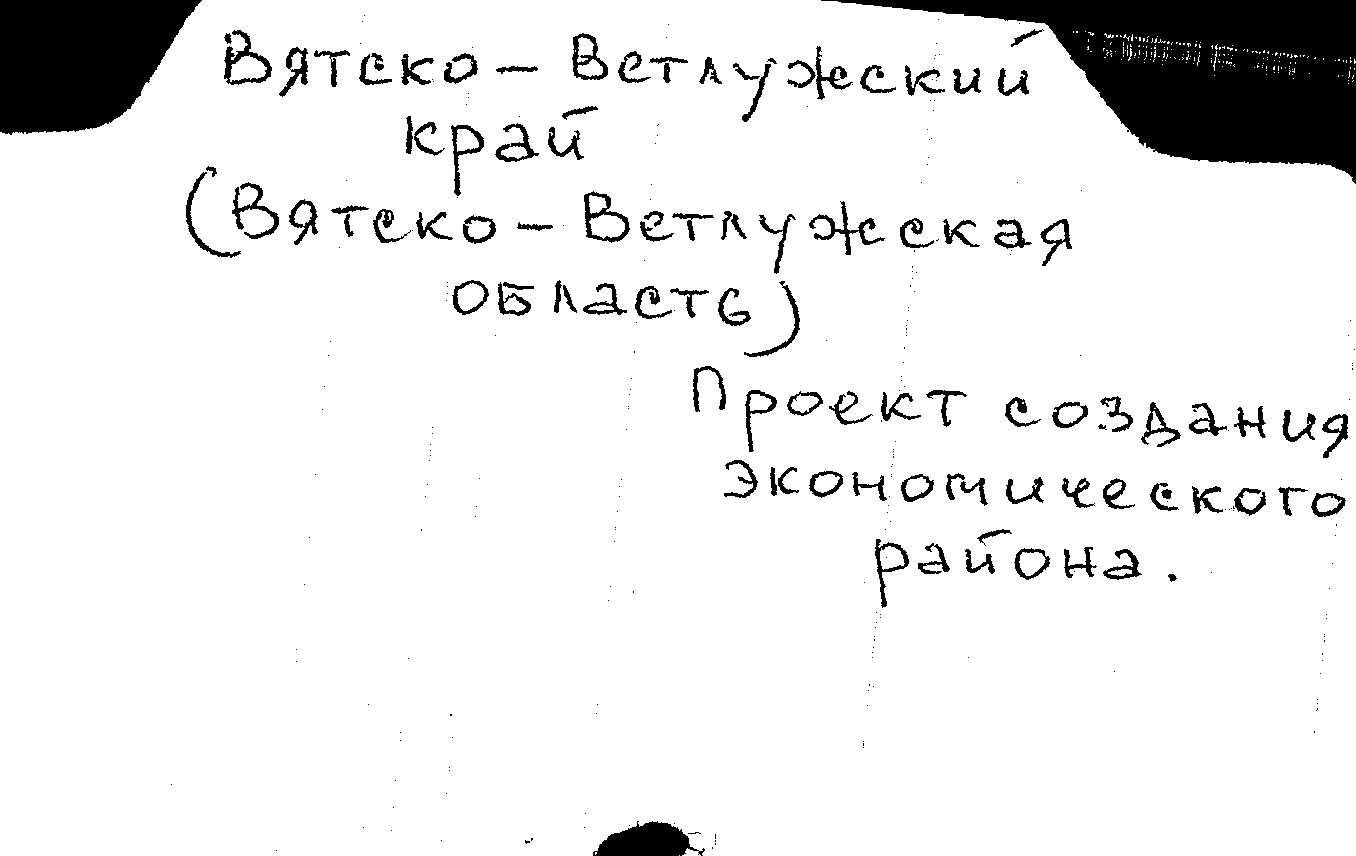 Вятско - Ветлужский
край
(Вятско - Ветлужская
область)
Проект создания
экономического
района.